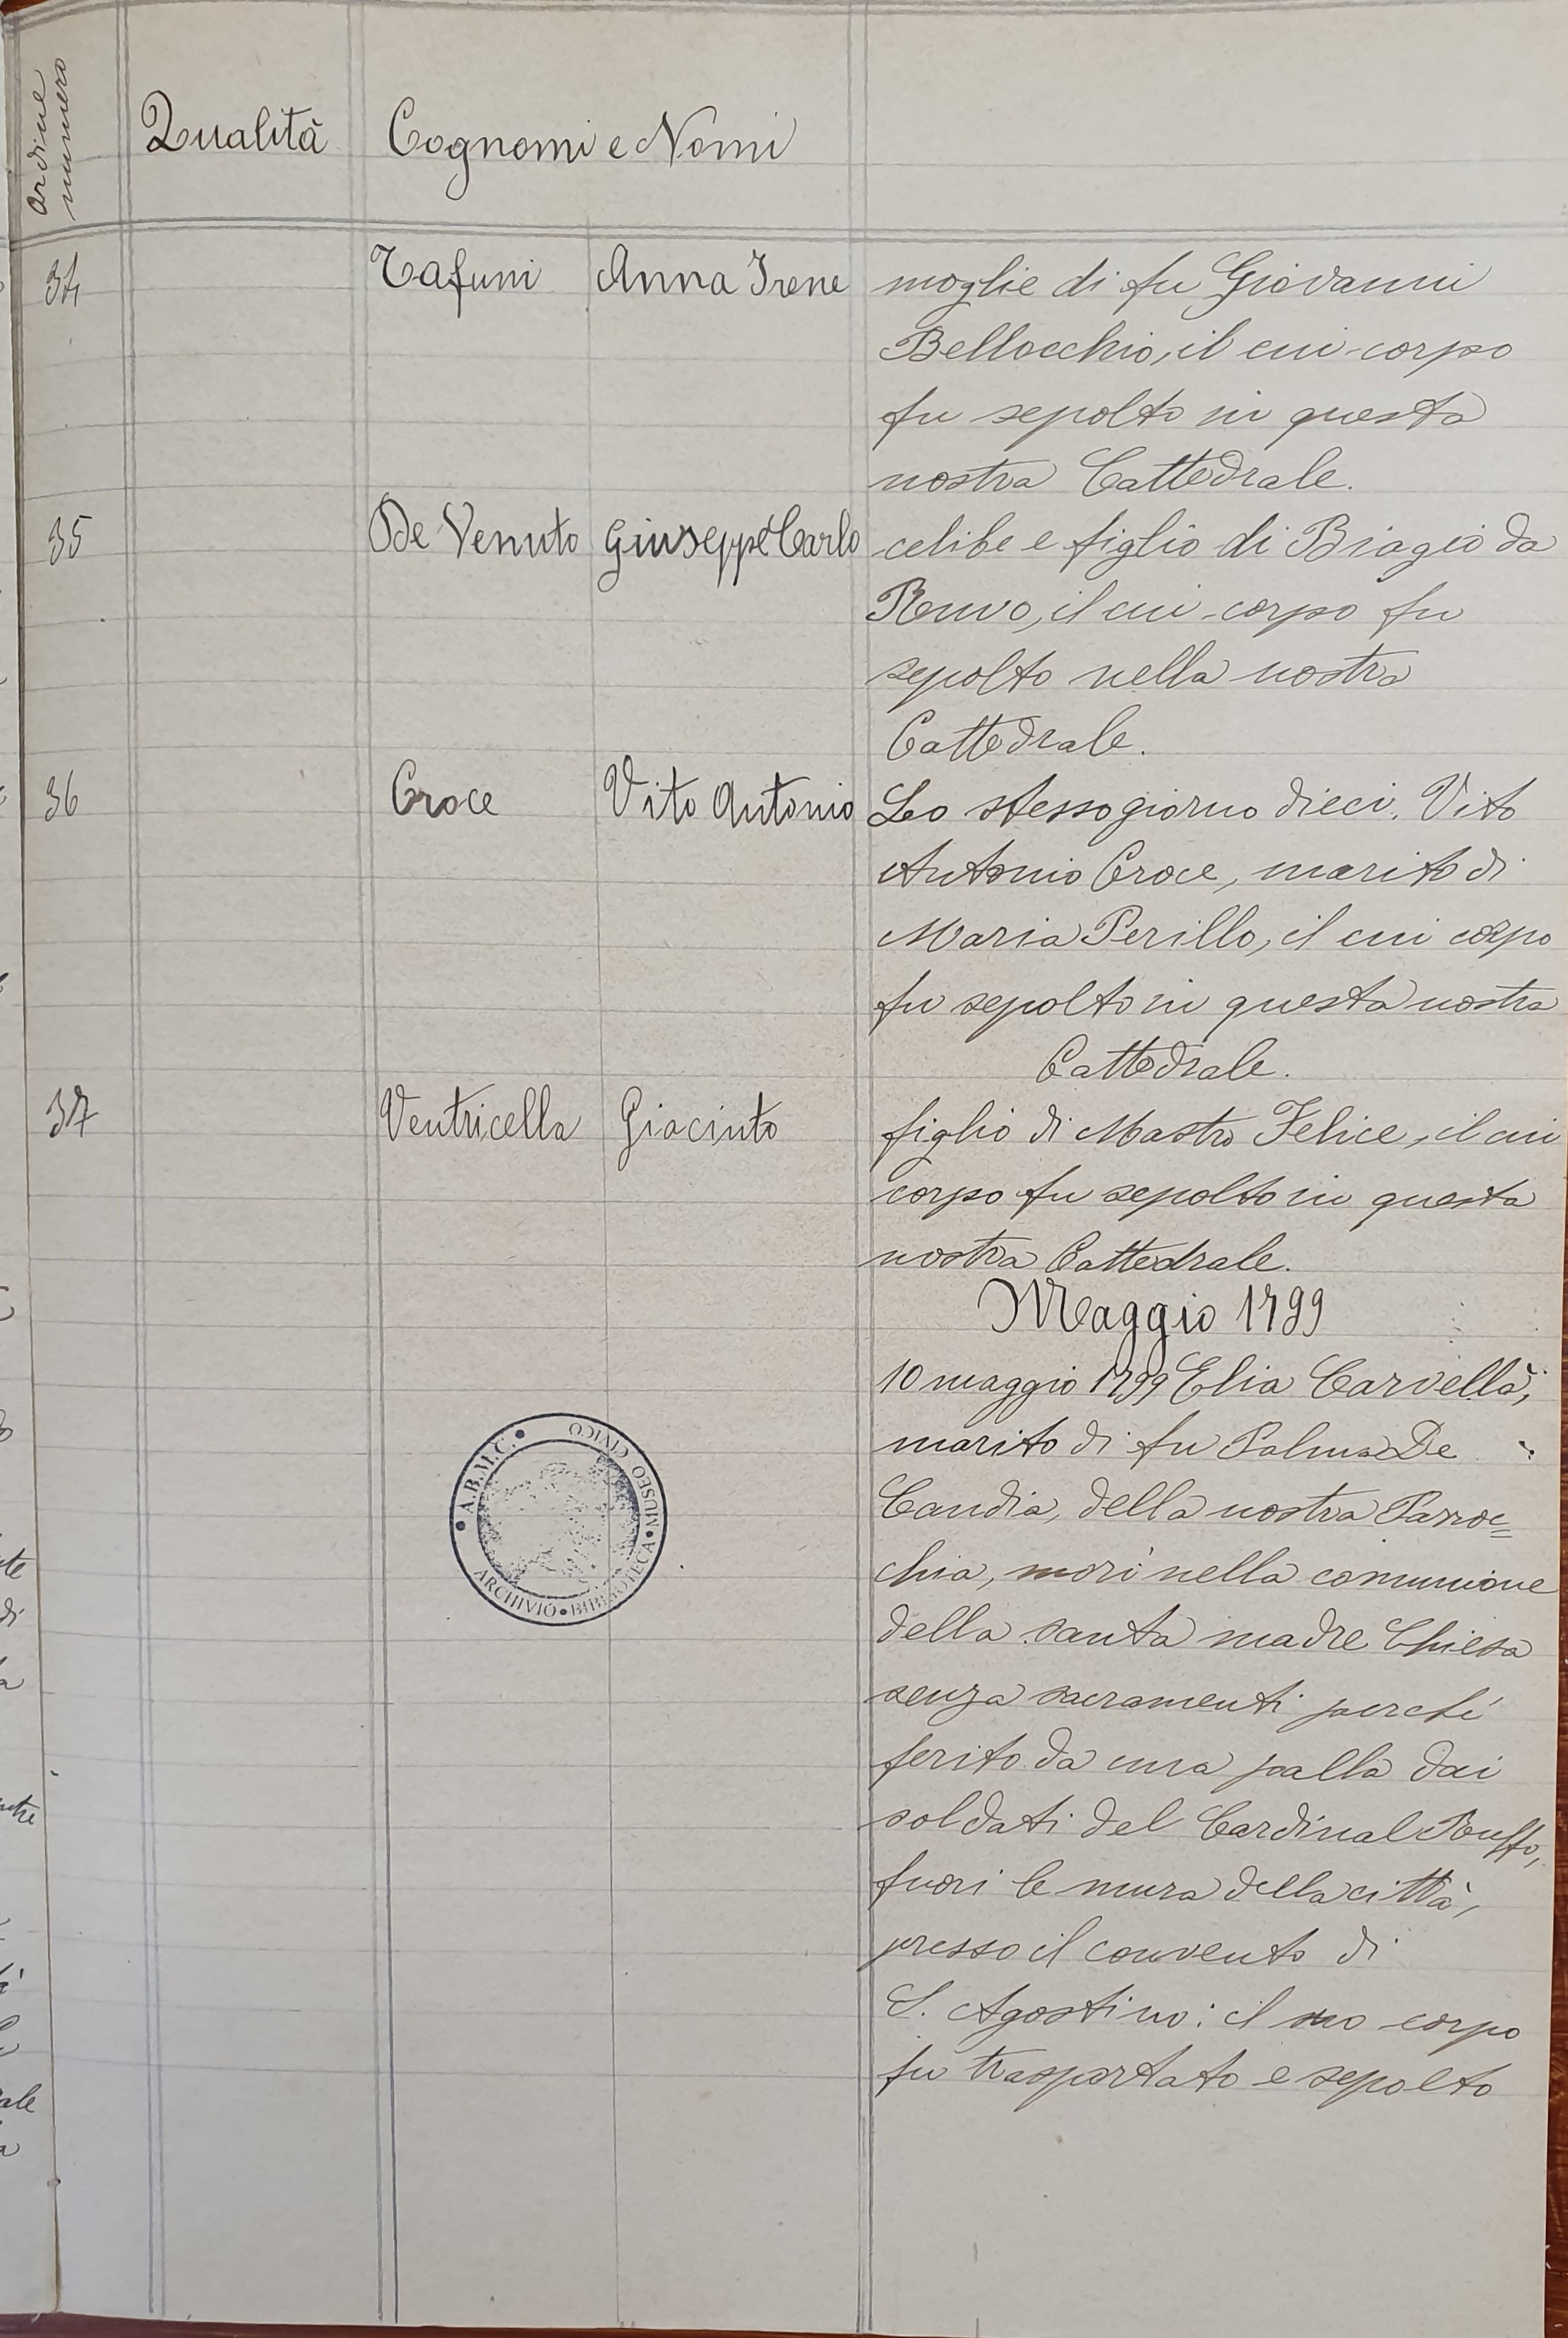 Ordine numero
Qualità Cognomi e Nomi
34 Tafuni Anna Irene moglie di fu Giovanni
Bellocchio, il cui corpo
fu sepolto in questa
nostra Cattedrale.
35 De Venuto Giuseppe Carlo celibe e figlio di Biagio da
Ruvo, il cui corpo fu
sepolto nella nostra
Cattedrale.
36 Croce Vito Antonio Lo stesso giorno dieci. Vito
Antonio Croce, marito di
Maria Perillo, il cui corpo
fu sepolto in questa nostra
Cattedrale.
37 Ventricella Giacinto figlio di Mastro Felice, il cui
corpo fu sepolto in questa
nostra Cattedrale.
Maggio 1799
10 maggio 1799 Elia Carvellà,
marito di fu Palma De
Candia, della nostra Parroc=
chia, morì nella comunione
della santa madre Chiesa
senza sacramenti perché
ferito da una palla dai
soldati del Cardinal Ruffo,
fuori le mura della città,
presso il convento di
S. Agostino: il suo corpo
fu trasportato e sepolto
A.B.M.C. ARCHIVIO BIBLIOTECA MUSEO CIVICO